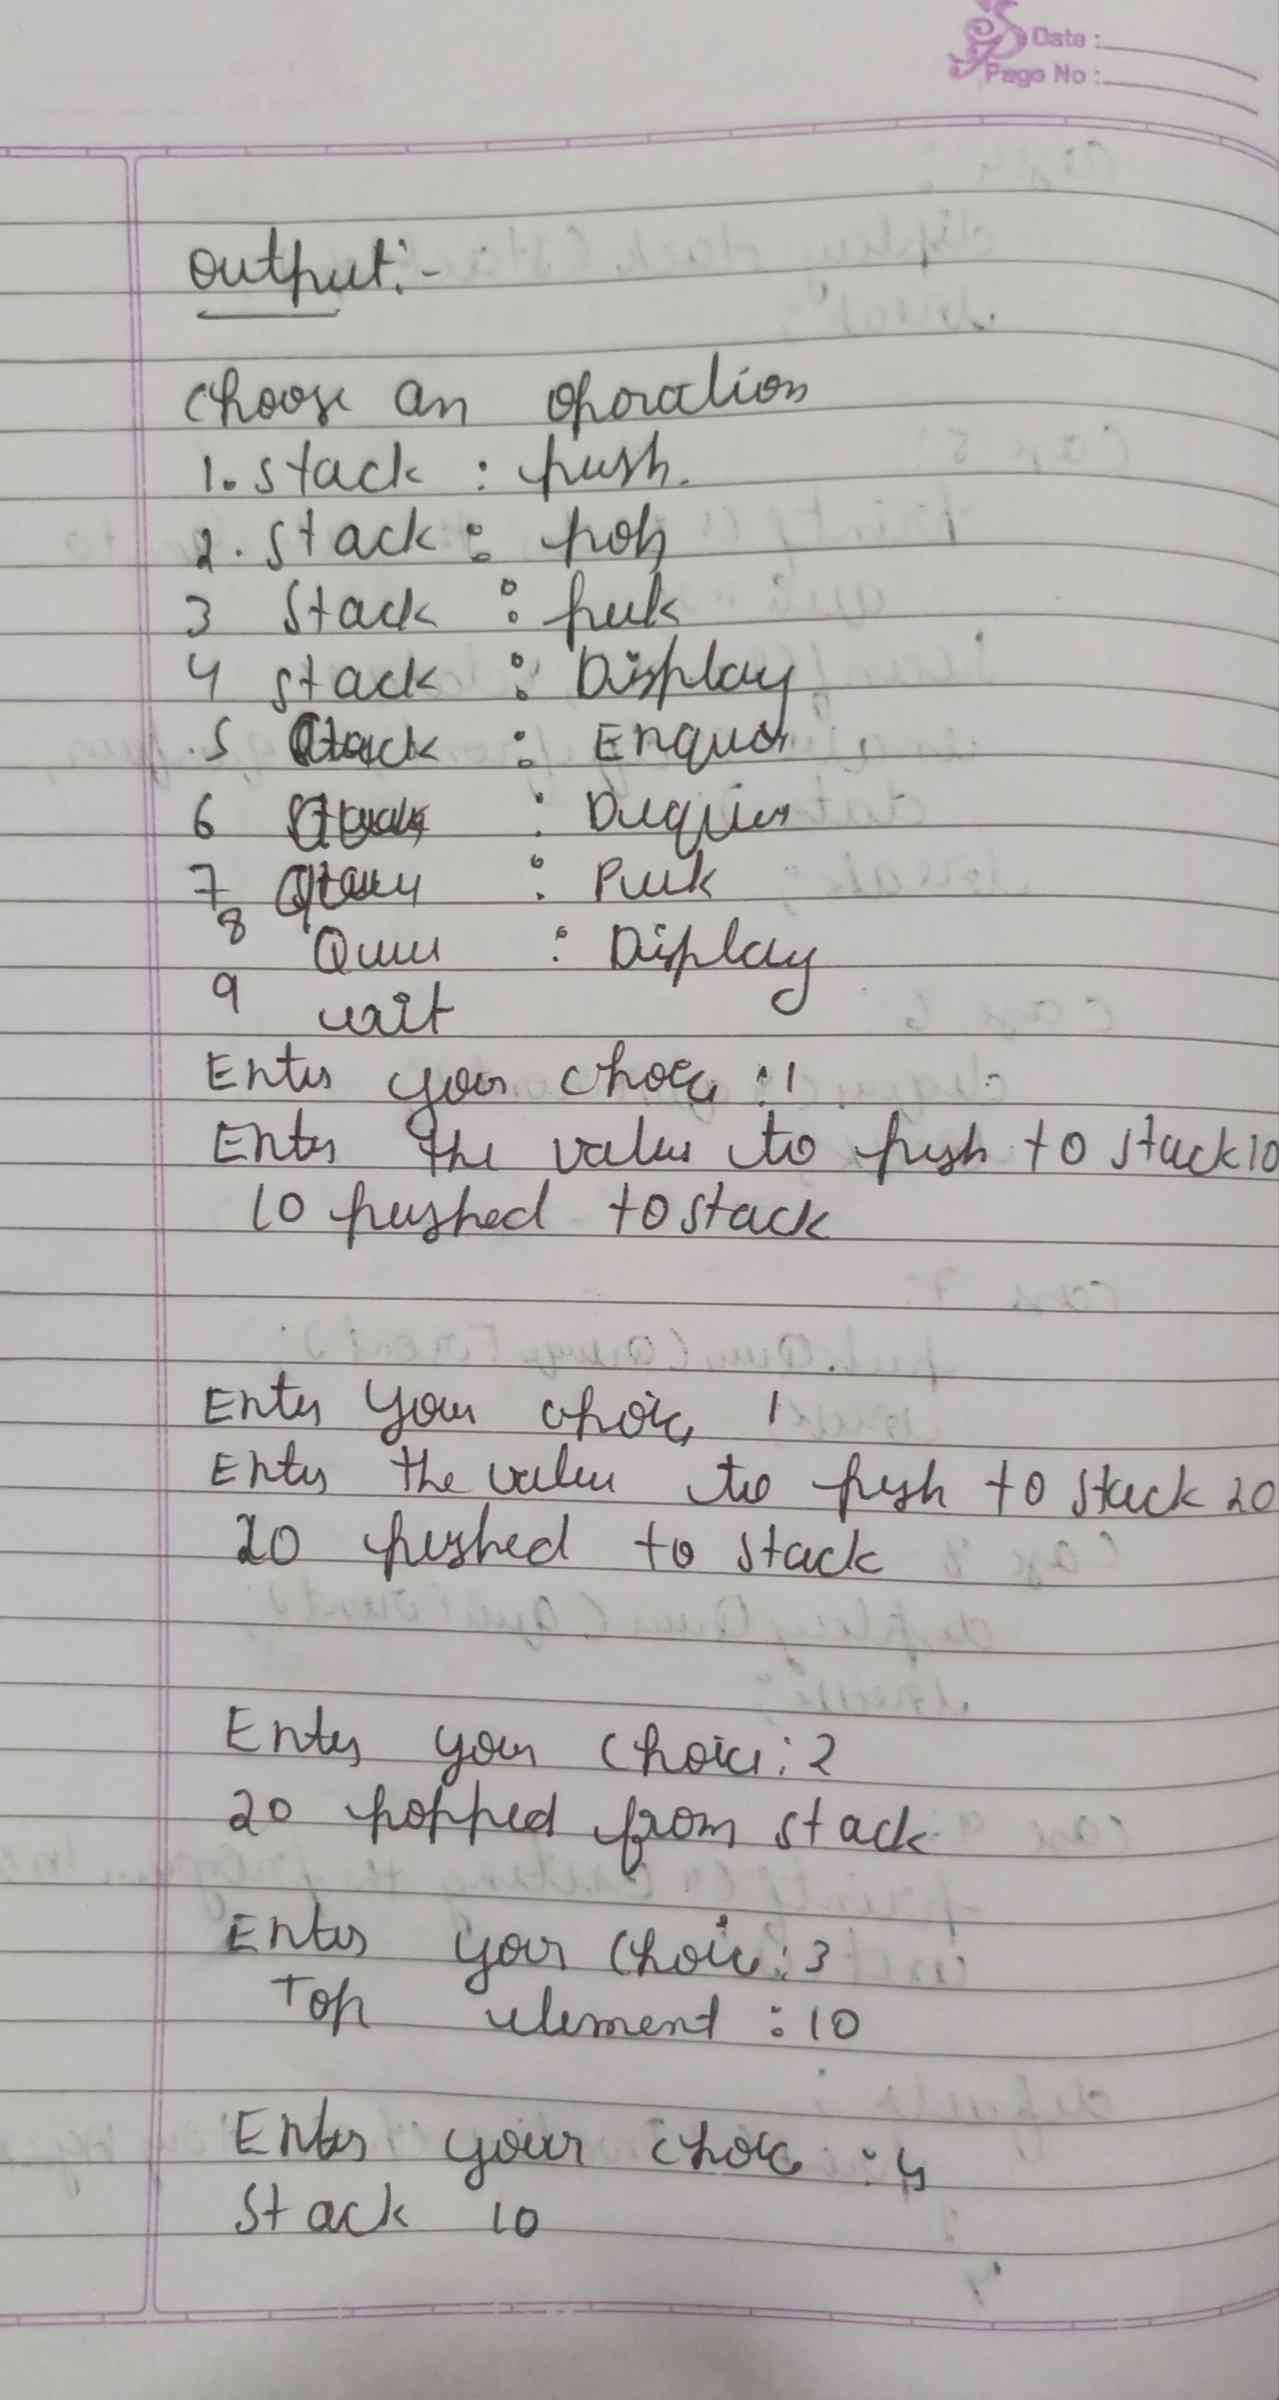 Date :
Page No :
Output:-
Choose an operation
1. Stack : push.
2. Stack : pop
3 Stack : peek
4 Stack : Display
5 : Enqueue
6 : Dequeue
7 : Peek
8 Queue : Display
9 exit
Enter your choice : 1
Enter the value to push to stack 10
10 pushed to stack
Enter your choice 1
Enter the value to push to stack 20
20 pushed to stack
Enter your choice : 2
20 popped from stack
Enter your choice : 3
Top element : 10
Enter your choice : 4
Stack 10